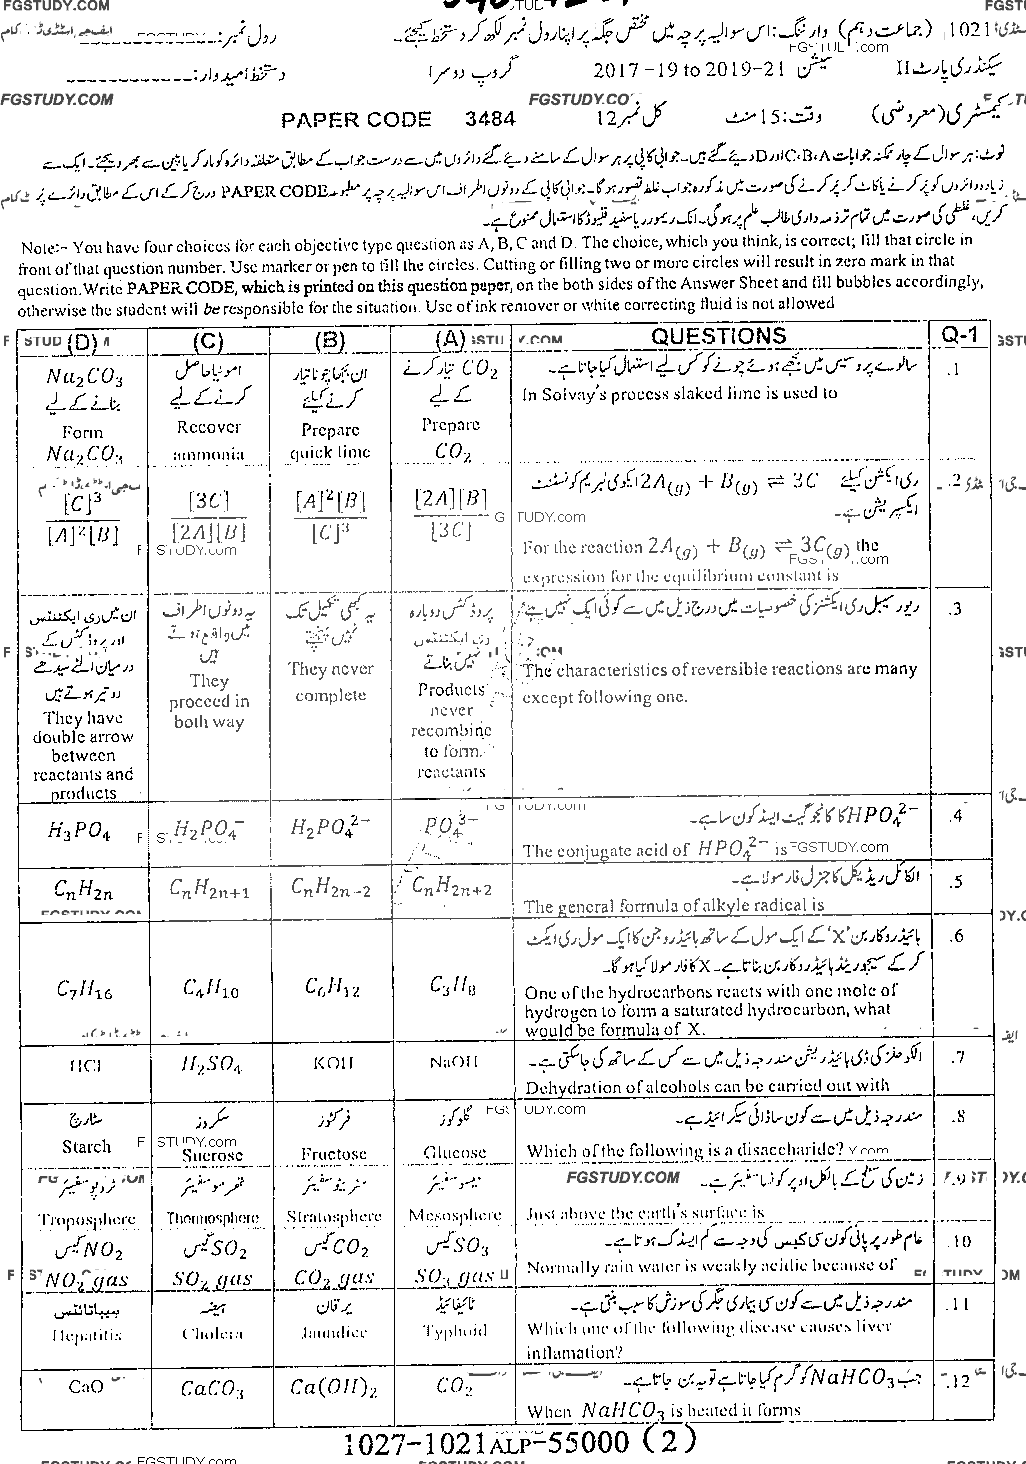 FGSTUDY.COM
1021 (جماعت دہم) وارننگ: اس سوالیہ پرچہ میں مختص جگہ پر اپنا رول نمبر لکھ کر دستخط کیجئے۔ رول نمبر:
سیکنڈری پارٹ II سیشن 2017-19 to 2019-21 گروپ دوسرا دستخط امیدوار:
FGSTUDY.COM
کیمسٹری (معروضی) وقت: 15 منٹ کل نمبر 12 PAPER CODE 3484
نوٹ: ہر سوال کے چار ممکنہ جوابات C،B،A اور D دیئے گئے ہیں۔ جوابی کاپی پر ہر سوال کے سامنے دیئے گئے دائروں میں سے درست جواب کے مطابق متعلقہ دائرہ کو مارکر یا پین سے بھر دیجئے۔ ایک سے
زیادہ دائروں کو پُر کرنے یا کاٹ کر پُر کرنے کی صورت میں مذکورہ جواب غلط تصور ہوگا۔ جوابی کاپی کے دونوں اطراف اس سوالیہ پرچہ پر مطبوعہ PAPER CODE درج کر کے اس کے مطابق دائرے پُر
کریں، غلطی کی صورت میں تمام تر ذمہ داری طالب علم پر ہوگی۔ انک ریموور یا سفید فلیوڈ کا استعمال ممنوع ہے۔
Note:- You have four choices for each objective type question as A, B, C and D. The choice, which you think, is correct; fill that circle in
front of that question number. Use marker or pen to fill the circles. Cutting or filling two or more circles will result in zero mark in that
question.Write PAPER CODE, which is printed on this question paper, on the both sides of the Answer Sheet and fill bubbles accordingly,
otherwise the student will be responsible for the situation. Use of ink remover or white correcting fluid is not allowed
Q-1 QUESTIONS (A) (B) (C) (D)
.1 سالوے پروسیس میں بجھے ہوئے چونے کو کس لیے استعمال کیا جاتا ہے۔
In Solvay's process slaked lime is used to
CO₂ تیار کرنے کے لیے
Prepare CO₂
ان بجھا چونا تیار کرنے کیلئے
Prepare quick lime
امونیا حاصل کرنے کے لیے
Recover ammonia
Na₂CO₃ بنانے کے لیے
Form Na₂CO₃
.2 ری ایکشن کیلئے 2A(g) + B(g) ⇌ 3C ایکوی لبریم کونسٹنٹ
ایکسپریشن ہے۔
For the reaction 2A(g) + B(g) ⇌ 3C(g) the
expression for the equilibrium constant is
[2A][B] / [3C]
[A]²[B] / [C]³
[3C] / [2A][B]
[C]³ / [A]²[B]
.3 ریورسیبل ری ایکشنز کی خصوصیات میں درج ذیل میں سے کوئی ایک نہیں ہے۔
The characteristics of reversible reactions are many
except following one.
پروڈکٹس دوبارہ ری ایکٹنٹس نہیں بناتے
Products never recombine to form reactants
یہ کبھی تکمیل تک نہیں پہنچتے
They never complete
یہ دونوں اطراف میں واقع ہوتے ہیں
They proceed in both way
ان میں ری ایکٹنٹس اور پروڈکٹس کے درمیان الٹے سیدھے دو تیر ہوتے ہیں
They have double arrow between reactants and products
.4 HPO₄²⁻ کا کانجوگیٹ ایسڈ کون سا ہے۔
The conjugate acid of HPO₄²⁻ is
PO₄³⁻
H₂PO₄²⁻
H₂PO₄⁻
H₃PO₄
.5 الکائل ریڈیکل کا جنرل فارمولا ہے۔
The general formula of alkyle radical is
CₙH₂ₙ₊₂
CₙH₂ₙ₋₂
CₙH₂ₙ₊₁
CₙH₂ₙ
.6 ہائیڈروکاربن 'X' کے ایک مول کے ساتھ ہائیڈروجن کا ایک مول ری ایکٹ
کر کے سیچوریٹڈ ہائیڈروکاربن بناتا ہے۔ X کا فارمولا کیا ہوگا۔
One of the hydrocarbons reacts with one mole of
hydrogen to form a saturated hydrocarbon, what
would be formula of X.
C₃H₈
C₆H₁₂
C₄H₁₀
C₇H₁₆
.7 الکوحلز کی ڈی ہائیڈریشن مندرجہ ذیل میں سے کس کے ساتھ کی جا سکتی ہے۔
Dehydration of alcohols can be carried out with
NaOH
KOH
H₂SO₄
HCl
.8 مندرجہ ذیل میں سے کون سا ڈائی سیکرائیڈ ہے۔
Which of the following is a disaccharide?
گلوکوز
Glucose
فرکٹوز
Fructose
سکروز
Sucrose
سٹارچ
Starch
.9 زمین کی سطح کے بالکل اوپر کونسا سفیئر ہے۔
Just above the earth's surface is
میسوسفیئر
Mesosphere
سٹریٹوسفیئر
Stratosphere
تھرموسفیئر
Thermosphere
ٹروپوسفیئر
Troposphere
.10 عام طور پر پانی کون سی گیس کی وجہ سے کم ایسڈک ہوتا ہے۔
Normally rain water is weakly acidic because of
SO₃ گیس
SO₃ gas
CO₂ گیس
CO₂ gas
SO₂ گیس
SO₂ gas
NO₂ گیس
NO₂ gas
.11 مندرجہ ذیل میں سے کون سی بیماری جگر کی سوزش کا سبب بنتی ہے۔
Which one of the following disease causes liver
inflamation?
ٹائیفائیڈ
Typhoid
یرقان
Jaundice
ہیضہ
Cholera
ہیپاٹائٹس
Hepatitis
.12 جب NaHCO₃ کو گرم کیا جاتا ہے تو یہ بن جاتا ہے۔
When NaHCO₃ is heated it forms
CO₂
Ca(OH)₂
CaCO₃
CaO
1027-1021 ALP-55000 (2)
FGSTUDY.com